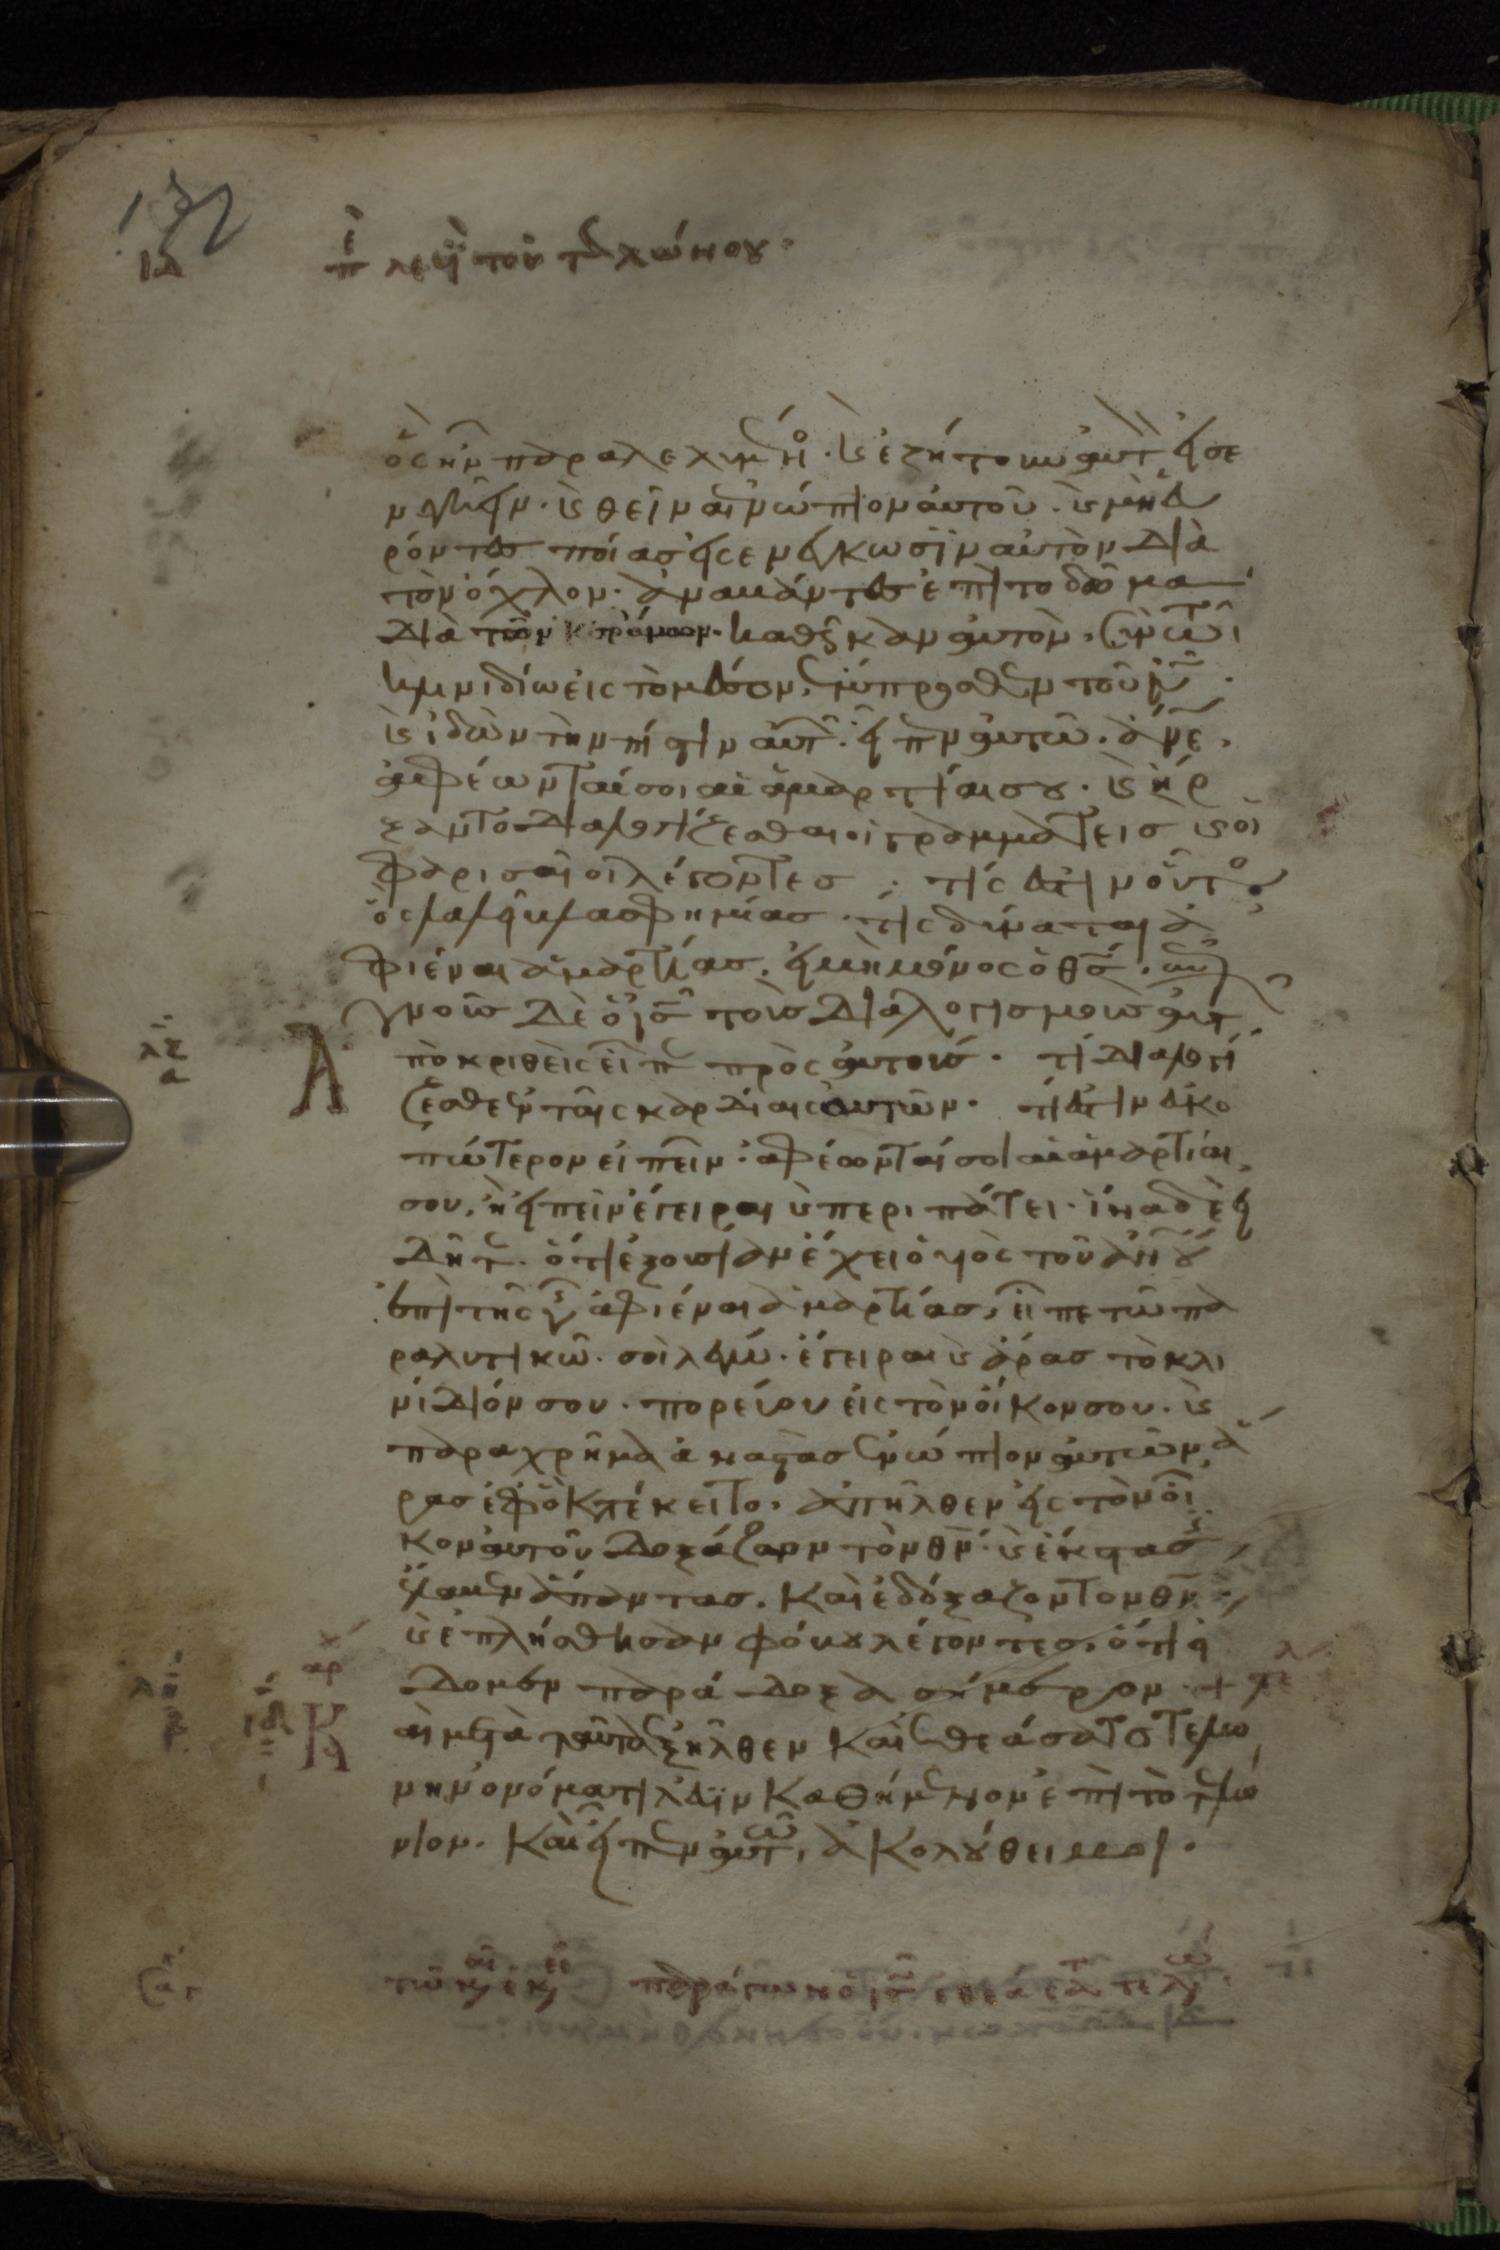 132
ιδ
π̀ε λευὶ τοῦ τελώνου.
ὃς ἦν παραλελυμένο. κ ἐζήτουν αὐτ εἰσε
νεγκεῖν. κ θεῖναι ἐνώπιον αὐτοῦ. κ μὴ εὑ
ρόντες ποίας εἰσενέγκωσιν αὐτὸν διὰ
τὸν ὄχλον. ἀναβάντες ἐπὶ το δῶμα
διὰ τῶν κεράμων. καθῆκαν αὐτὸν, σὺν τῶ
κλινιδίω εἰς τὸ μέσον, ἔμπροσθεν τοῦ ιυ.
κ ἰδὼν τὴν πίστιν αὐτ. εἶπεν αὐτῶ. ἄνε,
ἀφέωνταί σοι αἱ ἁμαρτίαι σου. κ ἤρ
ξαντο διαλογίζεσθαι οἱ γραμματεῖς κ οἱ
φαρισαῖοι λέγοντες ; τίς ἐστιν οὗτο
ὃς λαλεῖ βλασφημίας. τίς δύναται ἀ
φιέναι ἁμαρτίας. εἰ μὴ μόνος ὁ θς. ἐπι
γνοῦς δὲ ὁ ις τοὺς διαλογισμοὺς αὐτ.
Α
ποκριθεὶς εἶπε πρὸς αὐτούς. τί διαλογί
ζεσθε ἐν ταῖς καρδίαις αὐτῶν. τί ἐστιν εὐκο
πώτερον εἰπεῖν. ἀφέωνταί σοι αἱ ἁμαρτίαι
σου, ἢ εἰπεῖν ἔγειραι κ περιπάτει. ἵνα δὲ εἰ
δῆτε. ὅτι ἐξουσίαν ἔχει ὁ υἱὸς τοῦ ανου
ἐπὶ τῆς γῆς ἀφιέναι ἁμαρτίας, εἶπε τῶ πα
ραλυτικῶ. σοὶ λέγω. ἔγειραι κ ἄρας τὸ κλι
νίδιόν σου. πορεύου εἰς τὸν οἶκον σου. κ
παραχρῆμα ἀναστὰς ἐνώπιον αὐτῶν, ἄ
ρας ἐφ ὃ κατέκειτο. ἀπῆλθεν εἰς τὸν οἶ
κον αὐτοῦ δοξάζων τὸν θν. κ ἔκστασις
ἔλαβεν ἅπαντας. καὶ ἐδόξαζον τον θν
κ ἐπλήσθησαν φόβου λέγοντες, ὅτι εἴ
δομεν παράδοξα σήμερον. +
Κ
αὶ μετὰ ταῦτα ἐξῆλθεν καὶ ἐθεάσατο τελώ
νην ὀνόματι λευΐν καθήμενον ἐπὶ τὸ τελώ
νιον. καὶ εἶπεν αὐτῶ, ἀκολούθει μοι.
τῶ καιρῶ ἐκείνω παράγων ὁ ις ἐθεάσατο τελώ